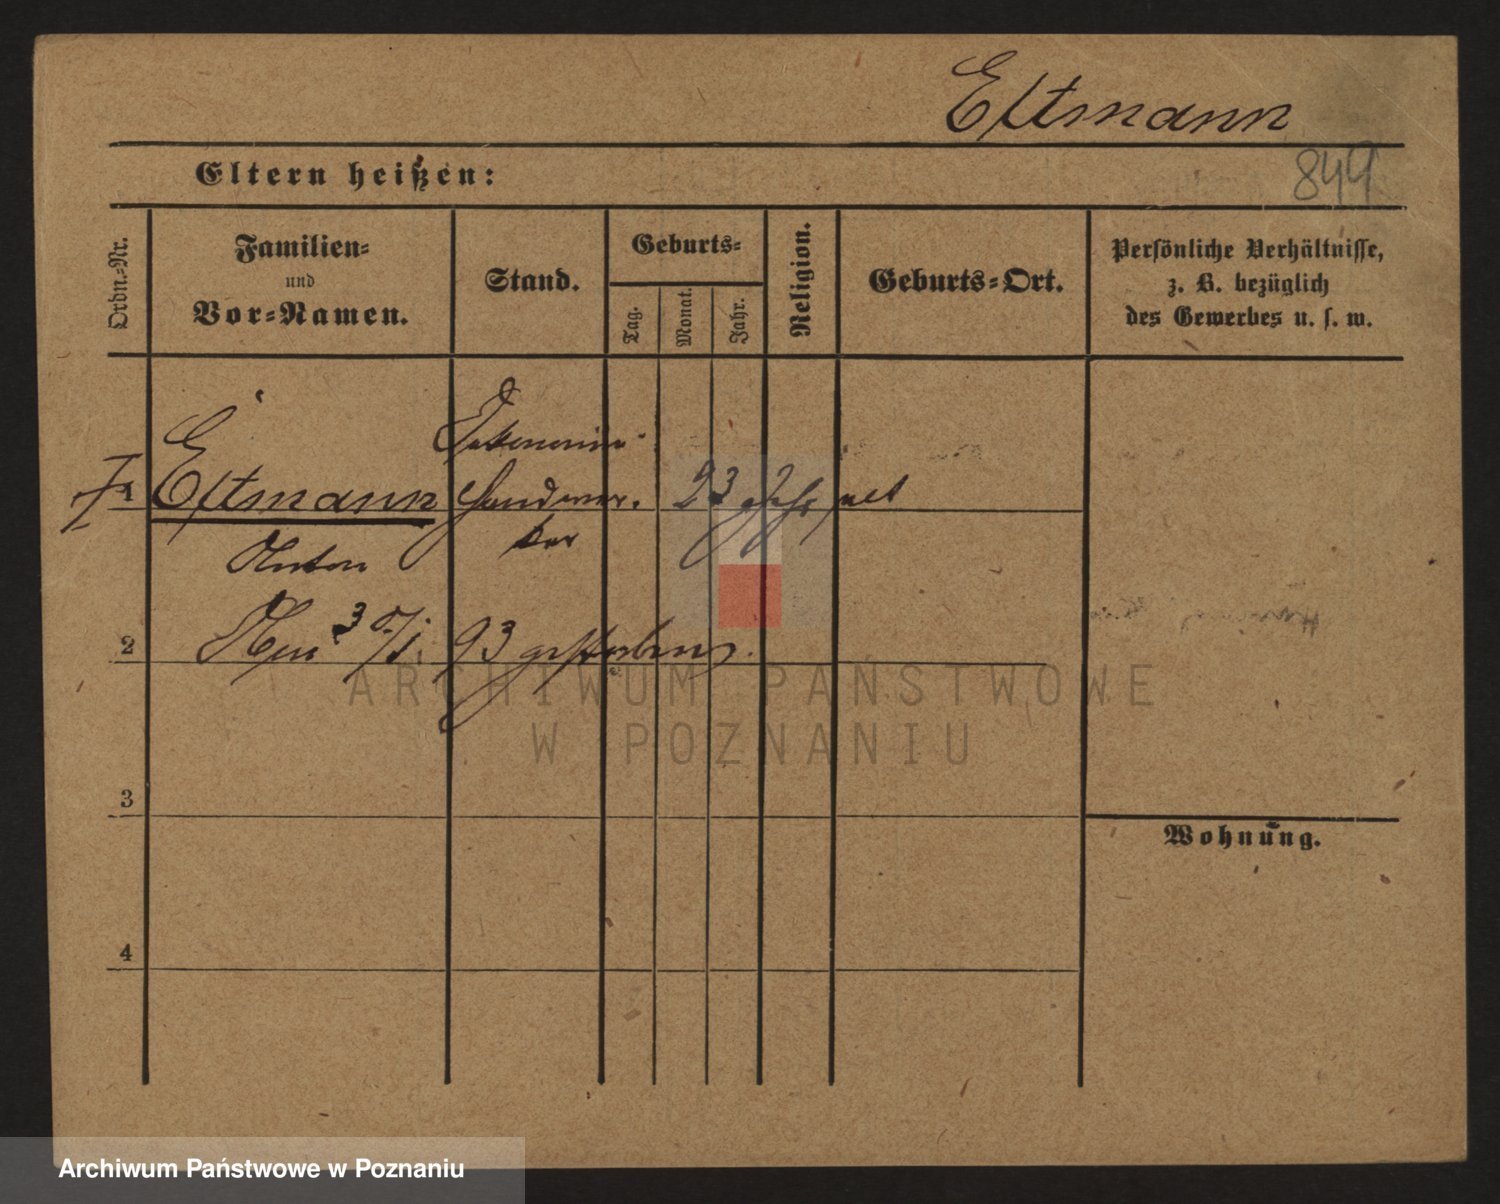 Eltmann
849
Eltern heißen:
Ordn.-Nr.
Familien-
und
Vor-Namen.
Stand.
Geburts-
Tag.
Monat.
Jahr.
Religion.
Geburts-Ort.
Persönliche Verhältnisse,
z. B. bezüglich
des Gewerbes u. s. w.
Eltmann
23 Jahr alt
Anton
2
93 gestorben.
3
Wohnung.
4
ARCHIWUM PAŃSTWOWE
W POZNANIU
Archiwum Państwowe w Poznaniu